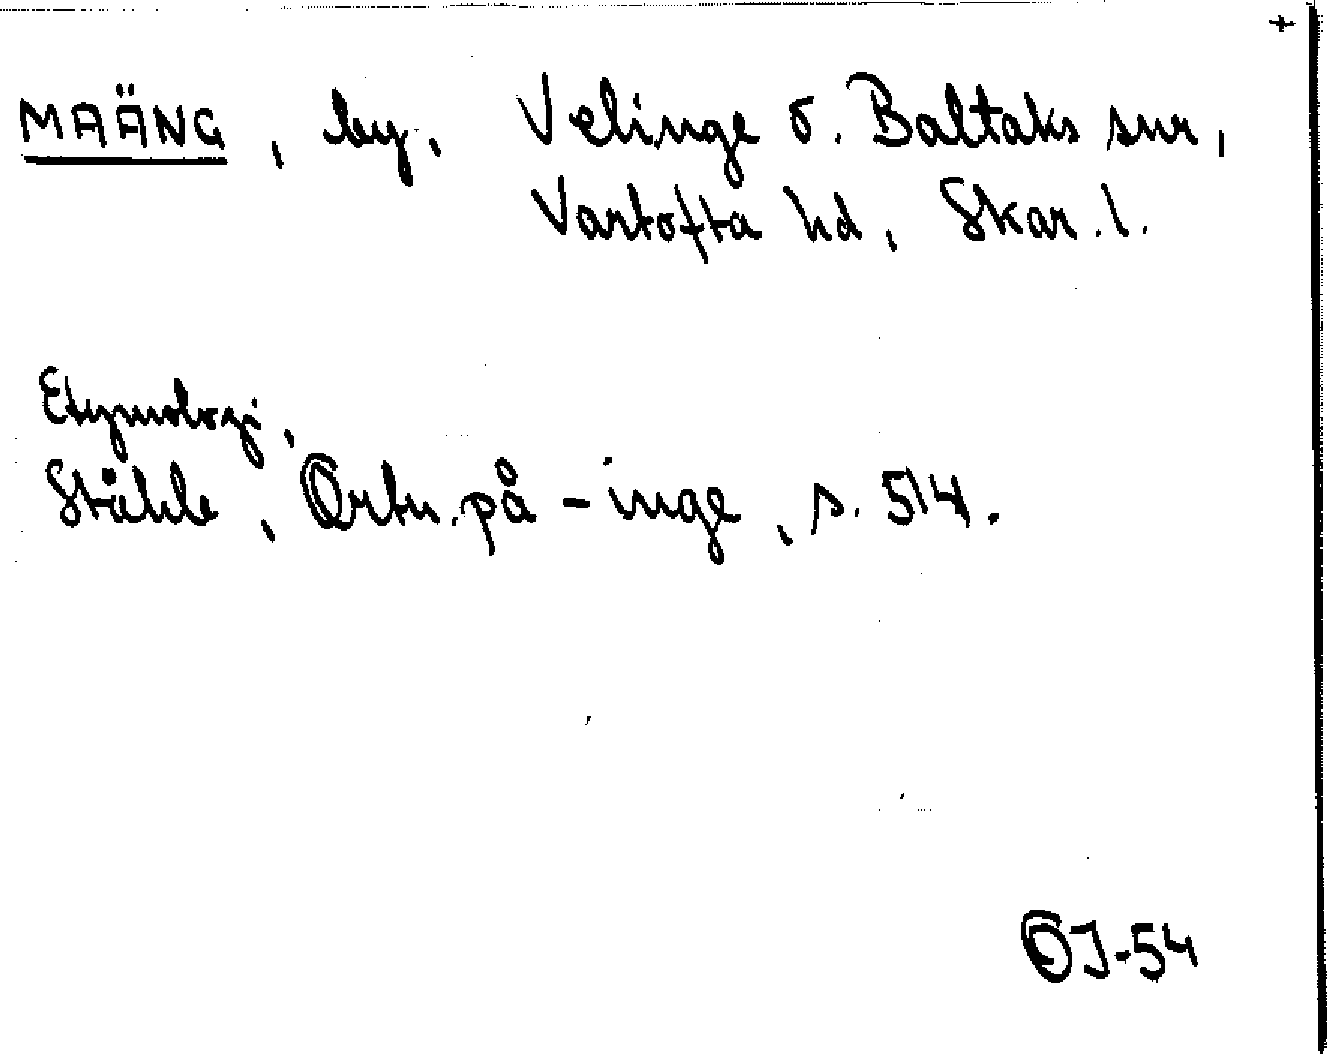 +
MAÄNG, by, Velinge o. Baltaks snr,
Vartofta hd, Skar. l.
Etymologi,
Ståhle, Ortn. på -inge, s. 514.
OJ-54